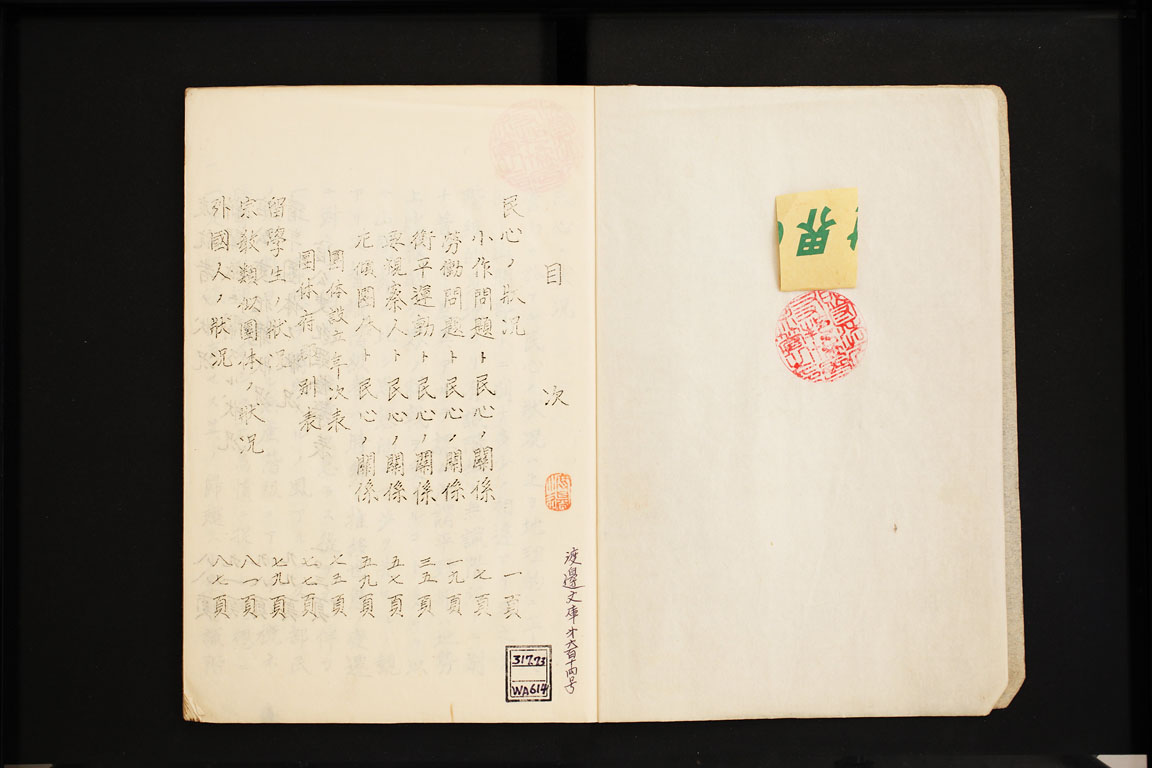 界
目次
民心ノ狀況 一頁
小作問題ト民心ノ關係 七頁
勞働問題ト民心ノ關係 一九頁
衡平運動ト民心ノ關係 三五頁
要視察人ト民心ノ關係 五七頁
左傾團体ト民心ノ關係 五九頁
團体設立年次表 七五頁
團体府 別表 七七頁
留學生ノ狀況 七九頁
宗敎類似團体ノ狀況 八一頁
外國人ノ狀況 八七頁
渡邊文庫才六百十四号
317.73
WA614